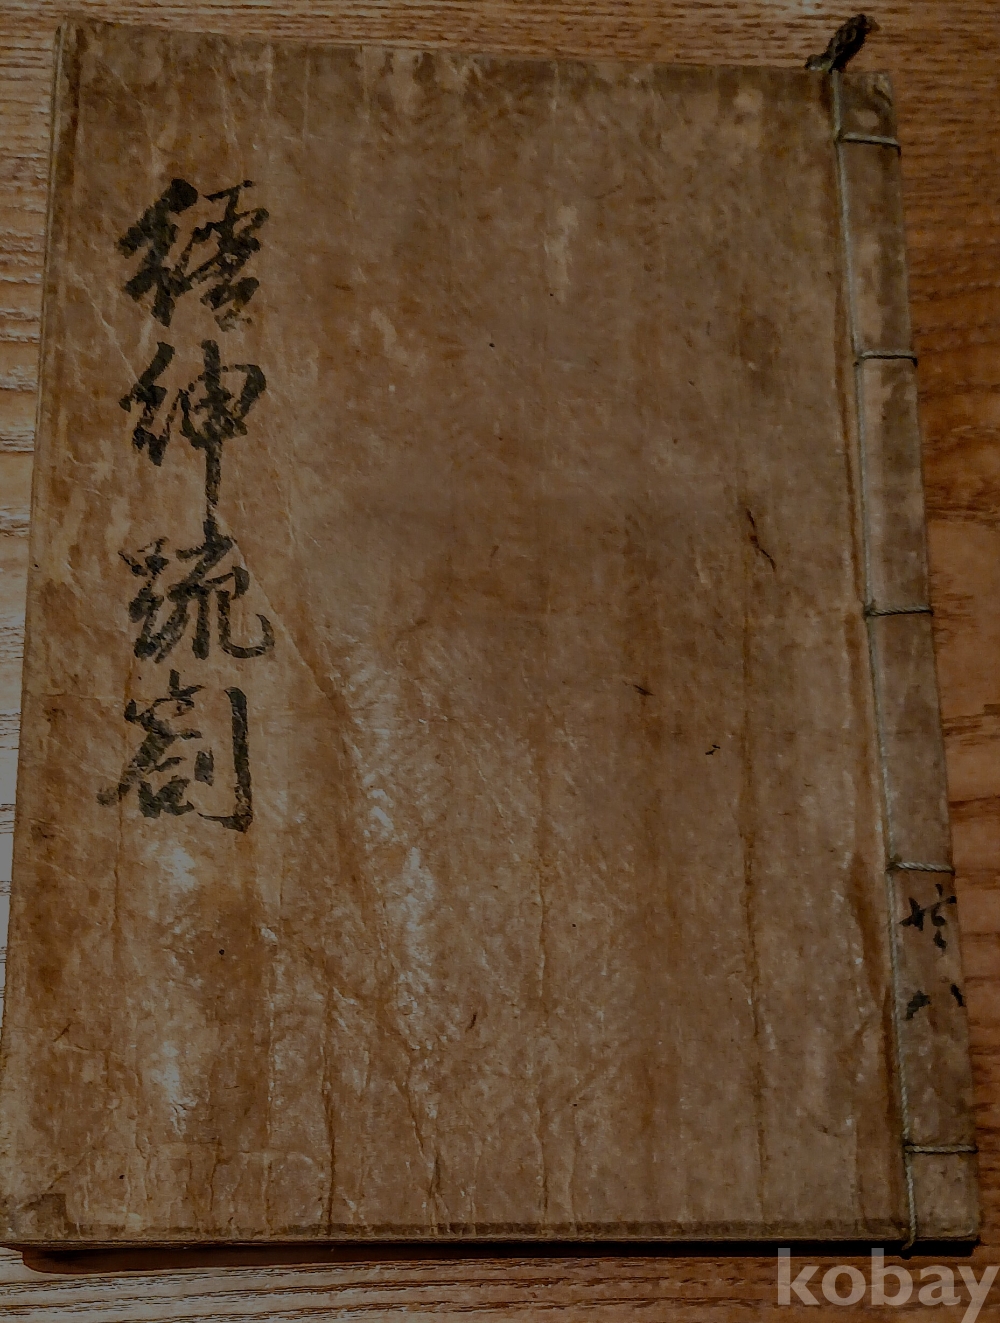 縉紳疏劄
共八
kobay